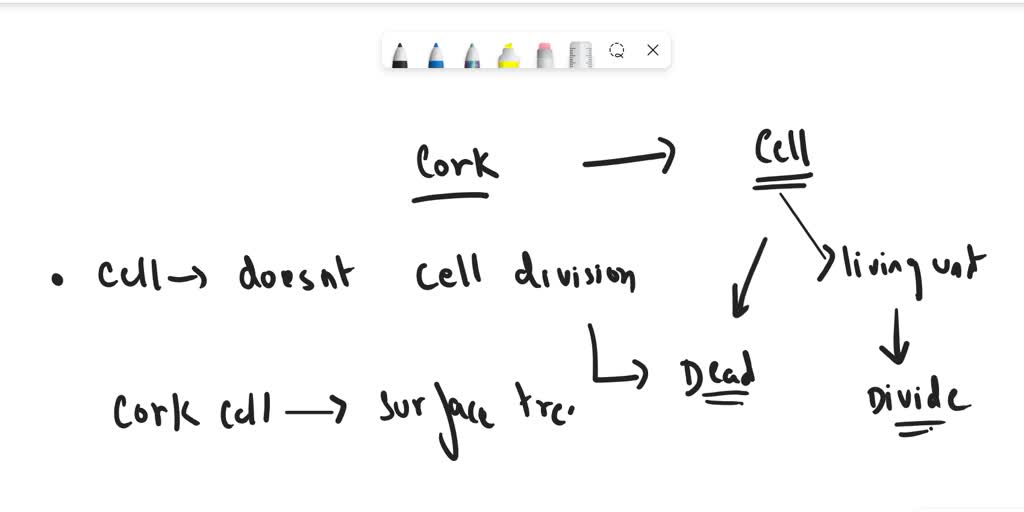 Cork → Cell
• Cell → doesnt cell division
living unt
Dead
Divide
Cork cell → surface tre